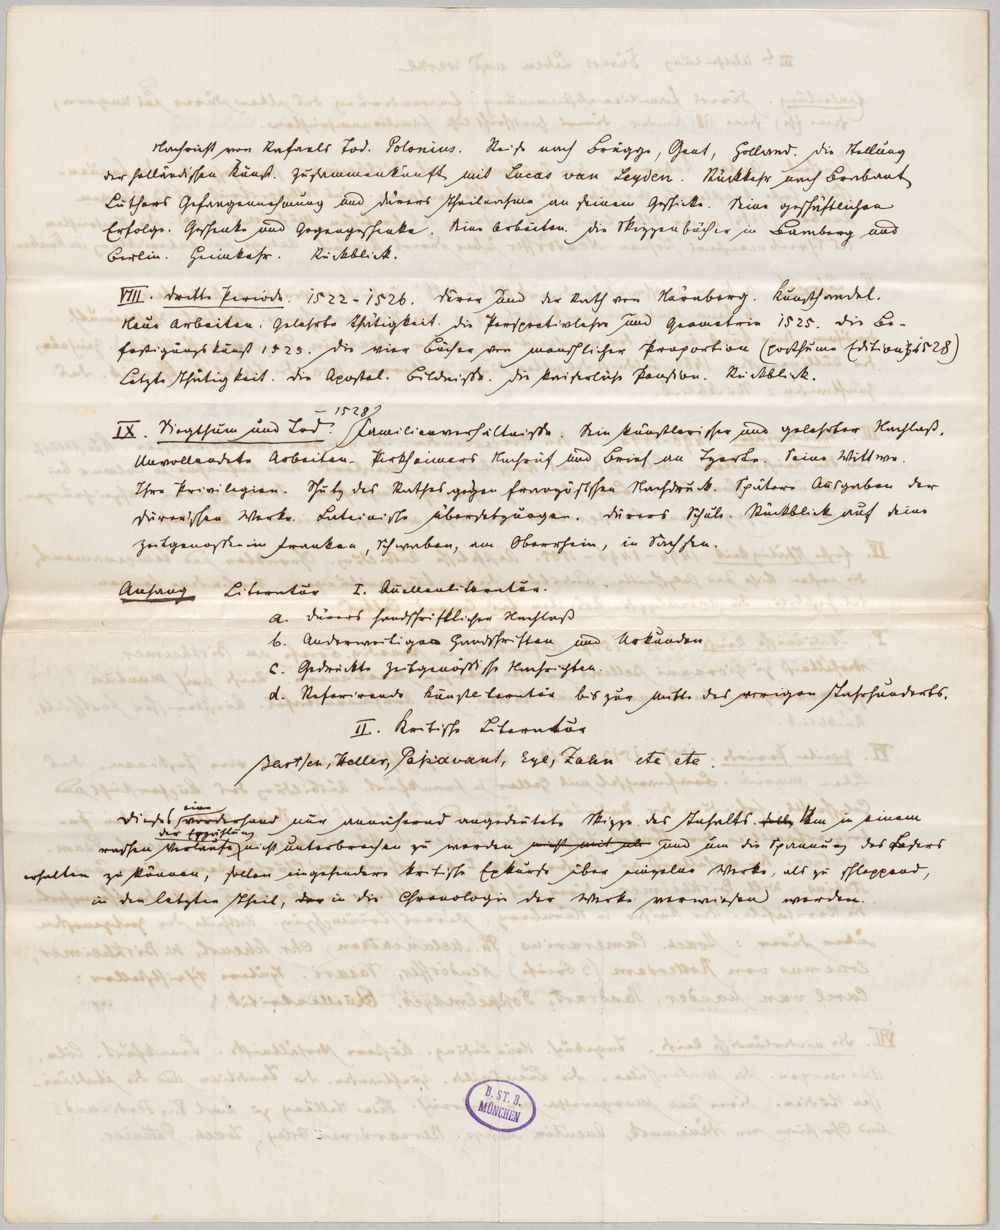 Nachricht von Rafaels Tod. Polonius. Reise nach Brügge, Gent, Holland. Die Stellung
der holländischen Kunst. Zusammenkunft mit Lucas van Leyden. Rückkehr nach Brabant
Luthers Gefangennehmung und Dürers Theilnahme an seinem Geschicke. Seine geschäftlichen
Erfolge. Geschenke und Gegengeschenke. Seine Arbeiten. Die Skizzenbücher in Bamberg und
Berlin. Heimkehr. Rückblick.
VIII. Dritte Periode. 1522-1526. Dürer und der Rath von Nürnberg. Kunsthandel.
Neue Arbeiten. Gelehrte Thätigkeit. Die Perspectivlehre und Geometrie 1525. Die Be-
festigungskunst 1525. Die vier Bücher von menschlicher Proportion (posthume Edition 1528)
Letzte Thätigkeit. Die Apostel. Bildnisse. Die kaiserliche Pension. Rückblick.
IX. Siegthum und Tod. – 1528 Familienverhältnisse. Sein künstlerischer und gelehrter Nachlaß.
Unvollendete Arbeiten. Pirkheimers Nachruf und Brief an Tzerte. Seine Wittwe.
Ihre Privilegien. Schutz des Rathes gegen französischen Nachdruck. Spätere Ausgaben der
Dürerischen Werke. Lateinische Übersetzungen. Dürers Schule. Rückblick auf seine
Zeitgenossen in Franken, Schwaben, am Oberrhein, in Sachsen.
Anhang Literatur I. Quellenliteratur.
a. Dürers handschriftlicher Nachlaß
b. Anderweitige Handschriften und Urkunden
c. Gedruckte zeitgenössische Nachrichten.
d. Referirende Kunstliteratur bis zur Mitte des vorigen Jahrhunderts.
II. Kritische Literatur
Bartsch, Heller, Passavant, Eye, Zahn etc etc.
Dieses eine vorderhand nur annähernd angedeutete Skizze des Inhalts. Um in einem
raschen Verlaufe der Erzählung nicht unterbrochen zu werden und um die Spannung des Lesers
erhalten zu können, sollen eingehendere kritische Exkurse über einzelne Werke, als zu schleppend,
in den letzten Theil, der in die Chronologie der Werke verwiesen werden.
B. ST. B.
MÜNCHEN